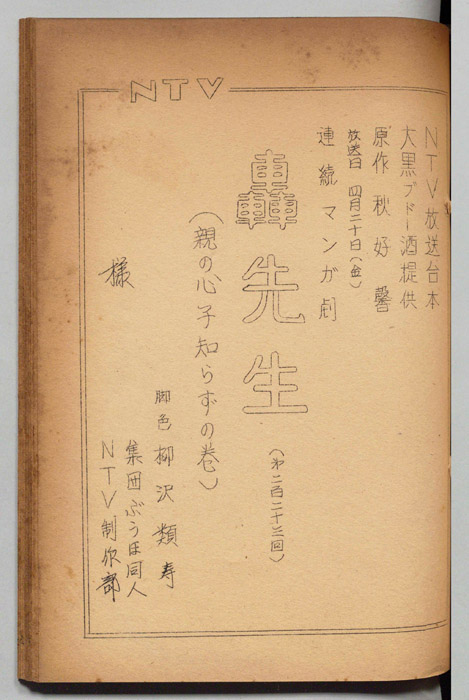 NTV
NTV放送台本
大黒ブドー酒提供
原作 秋好 馨
放送日 四月二十日(金)
連続 マンガ劇
轟先生
(第二百二十三回)
(親の心子知らずの巻)
脚色 柳沢類寿
集団ぶうほ同人
NTV制作部
様